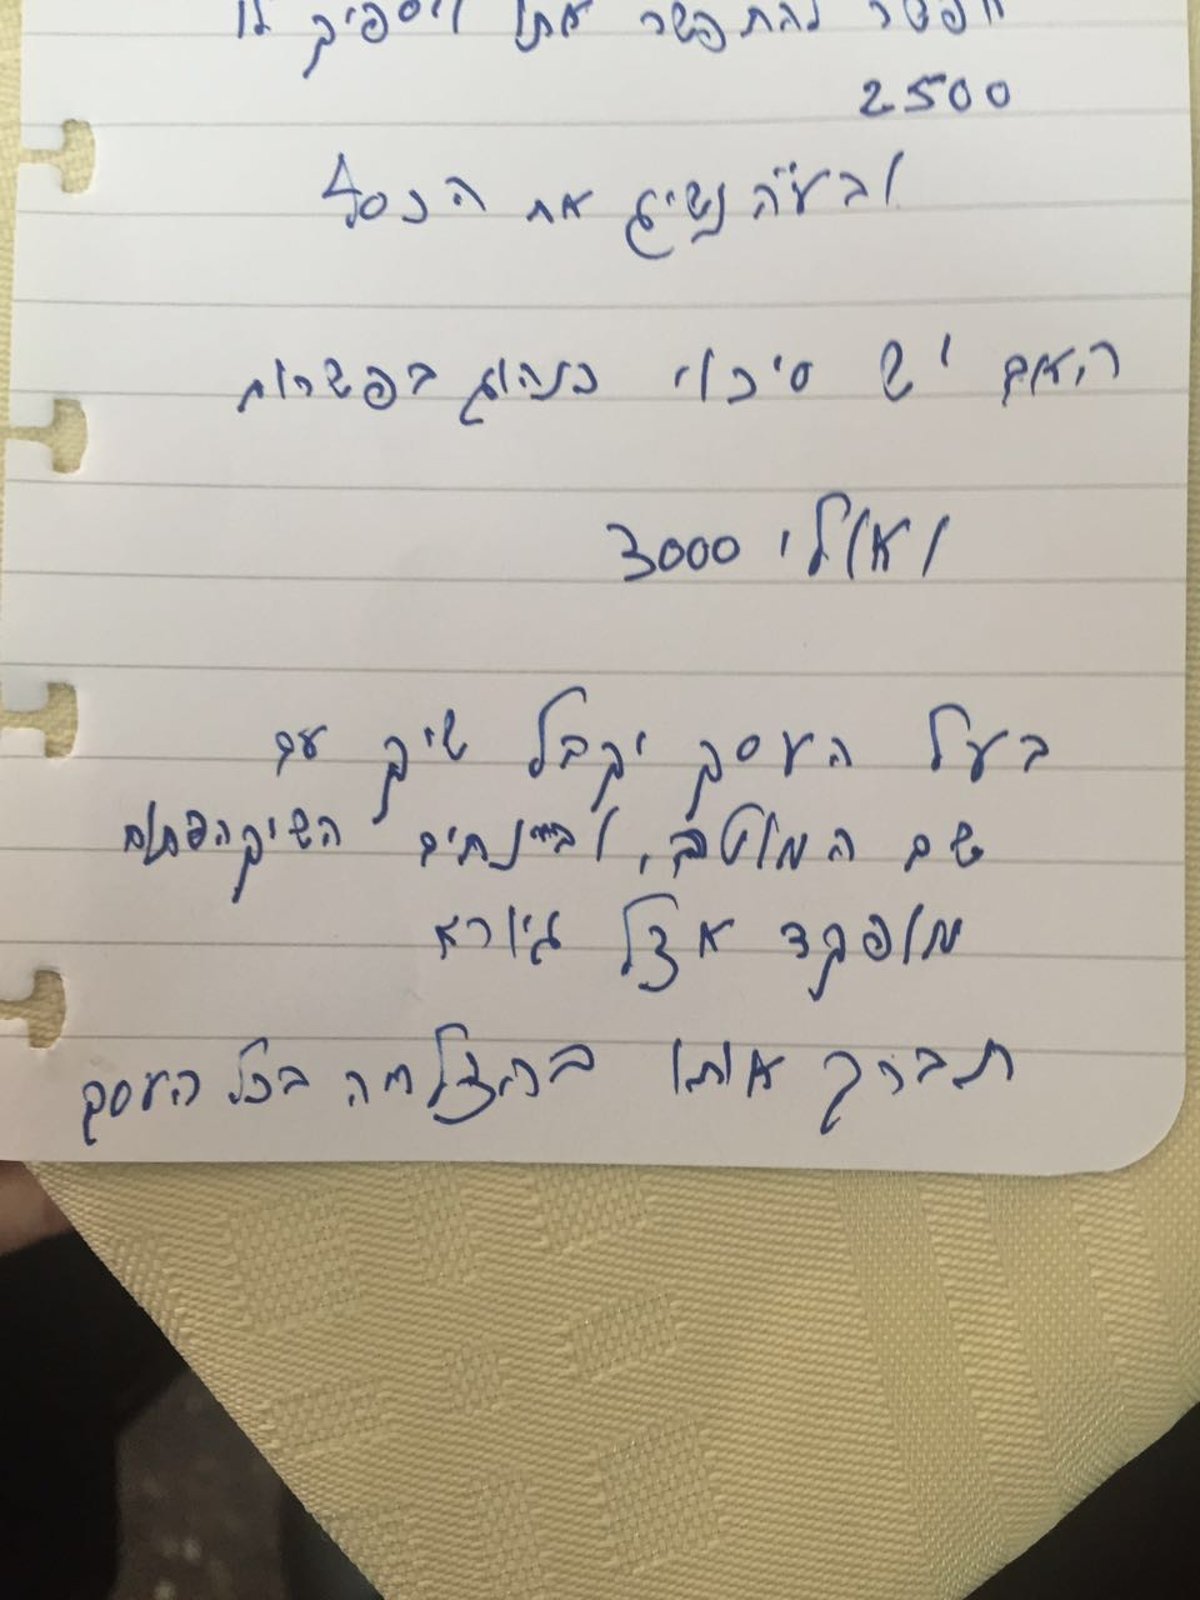 אפשר להתפשר אתו ויספיק לו
2500
ובע"ה נשיג את הכסף
האם יש סיכוי כנהוג בפשרות
ואולי 3000
בעל העסק יקבל שיק עם
שם המוטב, ובינתיים השיק הפתוח
מופקד אצל גיורא
תברך אותו בהצלחה בכל העסק